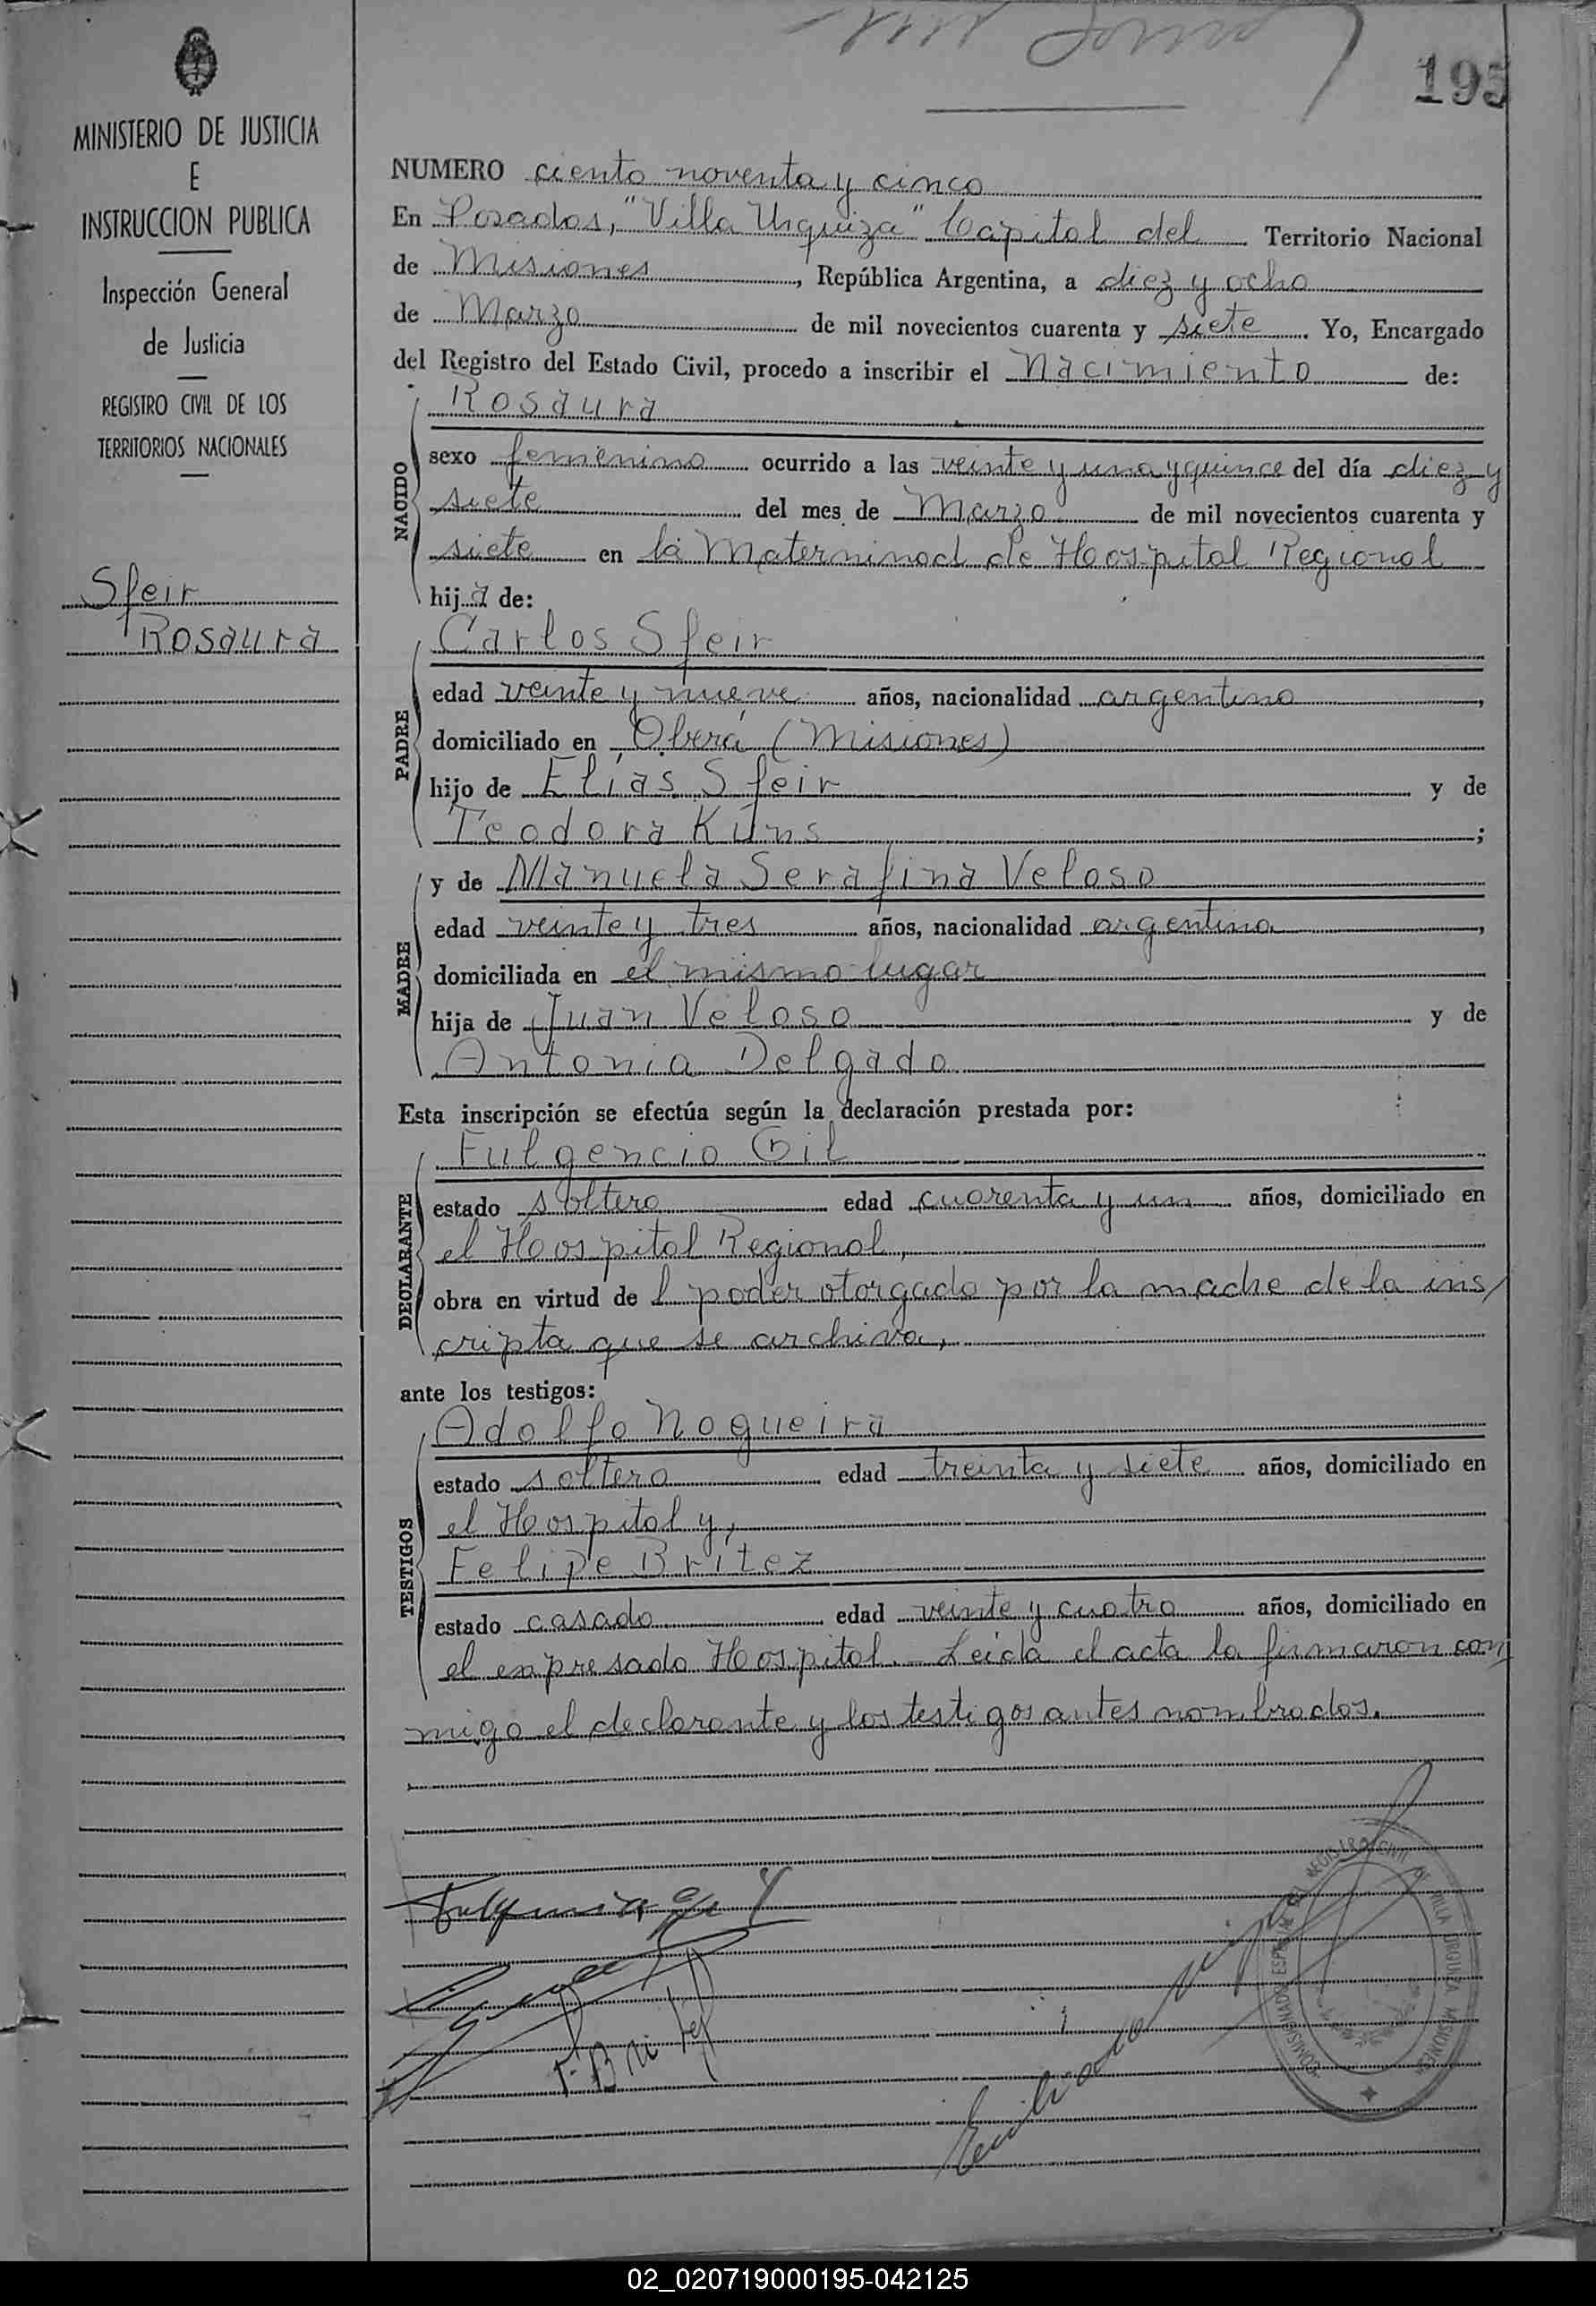 195
MINISTERIO DE JUSTICIA
E
INSTRUCCION PUBLICA
Inspección General
de Justicia
REGISTRO CIVIL DE LOS
TERRITORIOS NACIONALES
Sfeir
Rosaura
NUMERO ciento noventa y cinco
En Posadas, "Villa Urquiza" Capital del Territorio Nacional
de Misiones, República Argentina, a diez y ocho
de Marzo de mil novecientos cuarenta y siete. Yo, Encargado
del Registro del Estado Civil, procedo a inscribir el Nacimiento de:
NACIDO
Rosaura
sexo femenino ocurrido a las veinte y una y quince del día diez y
siete del mes de Marzo de mil novecientos cuarenta y
siete en la Materninad de Hospital Regional
hija de:
PADRE
Carlos Sfeir
edad veinte y nueve años, nacionalidad argentino,
domiciliado en Oberá (Misiones)
hijo de Elías Sfeir y de
Teodora Kúns;
MADRE
y de Manuela Serafina Veloso
edad veinte y tres años, nacionalidad argentina,
domiciliada en el mismo lugar
hija de Juan Veloso y de
Antonia Delgado
Esta inscripción se efectúa según la declaración prestada por:
DECLARANTE
Fulgencio Gil
estado soltero edad cuarenta y un años, domiciliado en
el Hospital Regional,
obra en virtud de l poder otorgado por la madre de la ins/
cripta que se archiva,
ante los testigos:
TESTIGOS
Adolfo Nogueira
estado soltero edad treinta y siete años, domiciliado en
el Hospital y,
Felipe Brítez
estado casado edad veinte y cuatro años, domiciliado en
el expresado Hospital.- Leida el acta la firmaron con
migo el declarante y los testigos antes nombrados.
F. Britez
REGISTRO CIVIL DE VILLA URQUIZA MISIONES
02_020719000195-042125